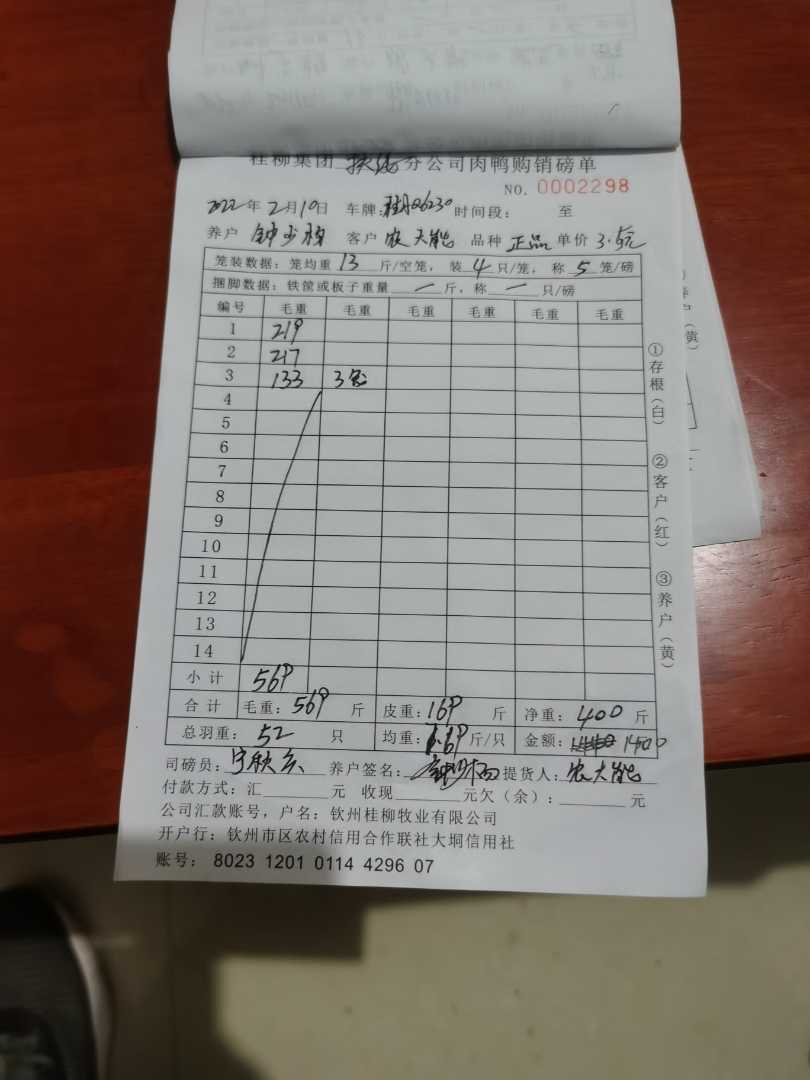 桂柳集团 扶绥 分公司肉鸭购销磅单
NO. 0002298
2022年 2月10日 车牌: 时间段: 至
养户 客户 农大能 品种 正品 单价 3.5元
笼装数据: 笼均重 13 斤/空笼, 装 4 只/笼, 称 5 笼/磅
捆脚数据: 铁筐或板子重量 一 斤, 称 一 只/磅
编号 毛重 毛重 毛重 毛重 毛重 毛重
1 219
2 217
3 133 3笼
4
5
6
7
8
9
10
11
12
13
14
小计 569
合计 毛重: 569 斤 皮重: 169 斤 净重: 400 斤
总羽重: 52 只 均重: 7.69 斤/只 金额: 1400
司磅员: 养户签名: 提货人: 农大能
付款方式: 汇 元 收现 元欠(余): 元
公司汇款账号, 户名: 钦州桂柳牧业有限公司
开户行: 钦州市区农村信用合作联社大垌信用社
账号: 8023 1201 0114 4296 07
①存根(白) ②客户(红) ③养户(黄)